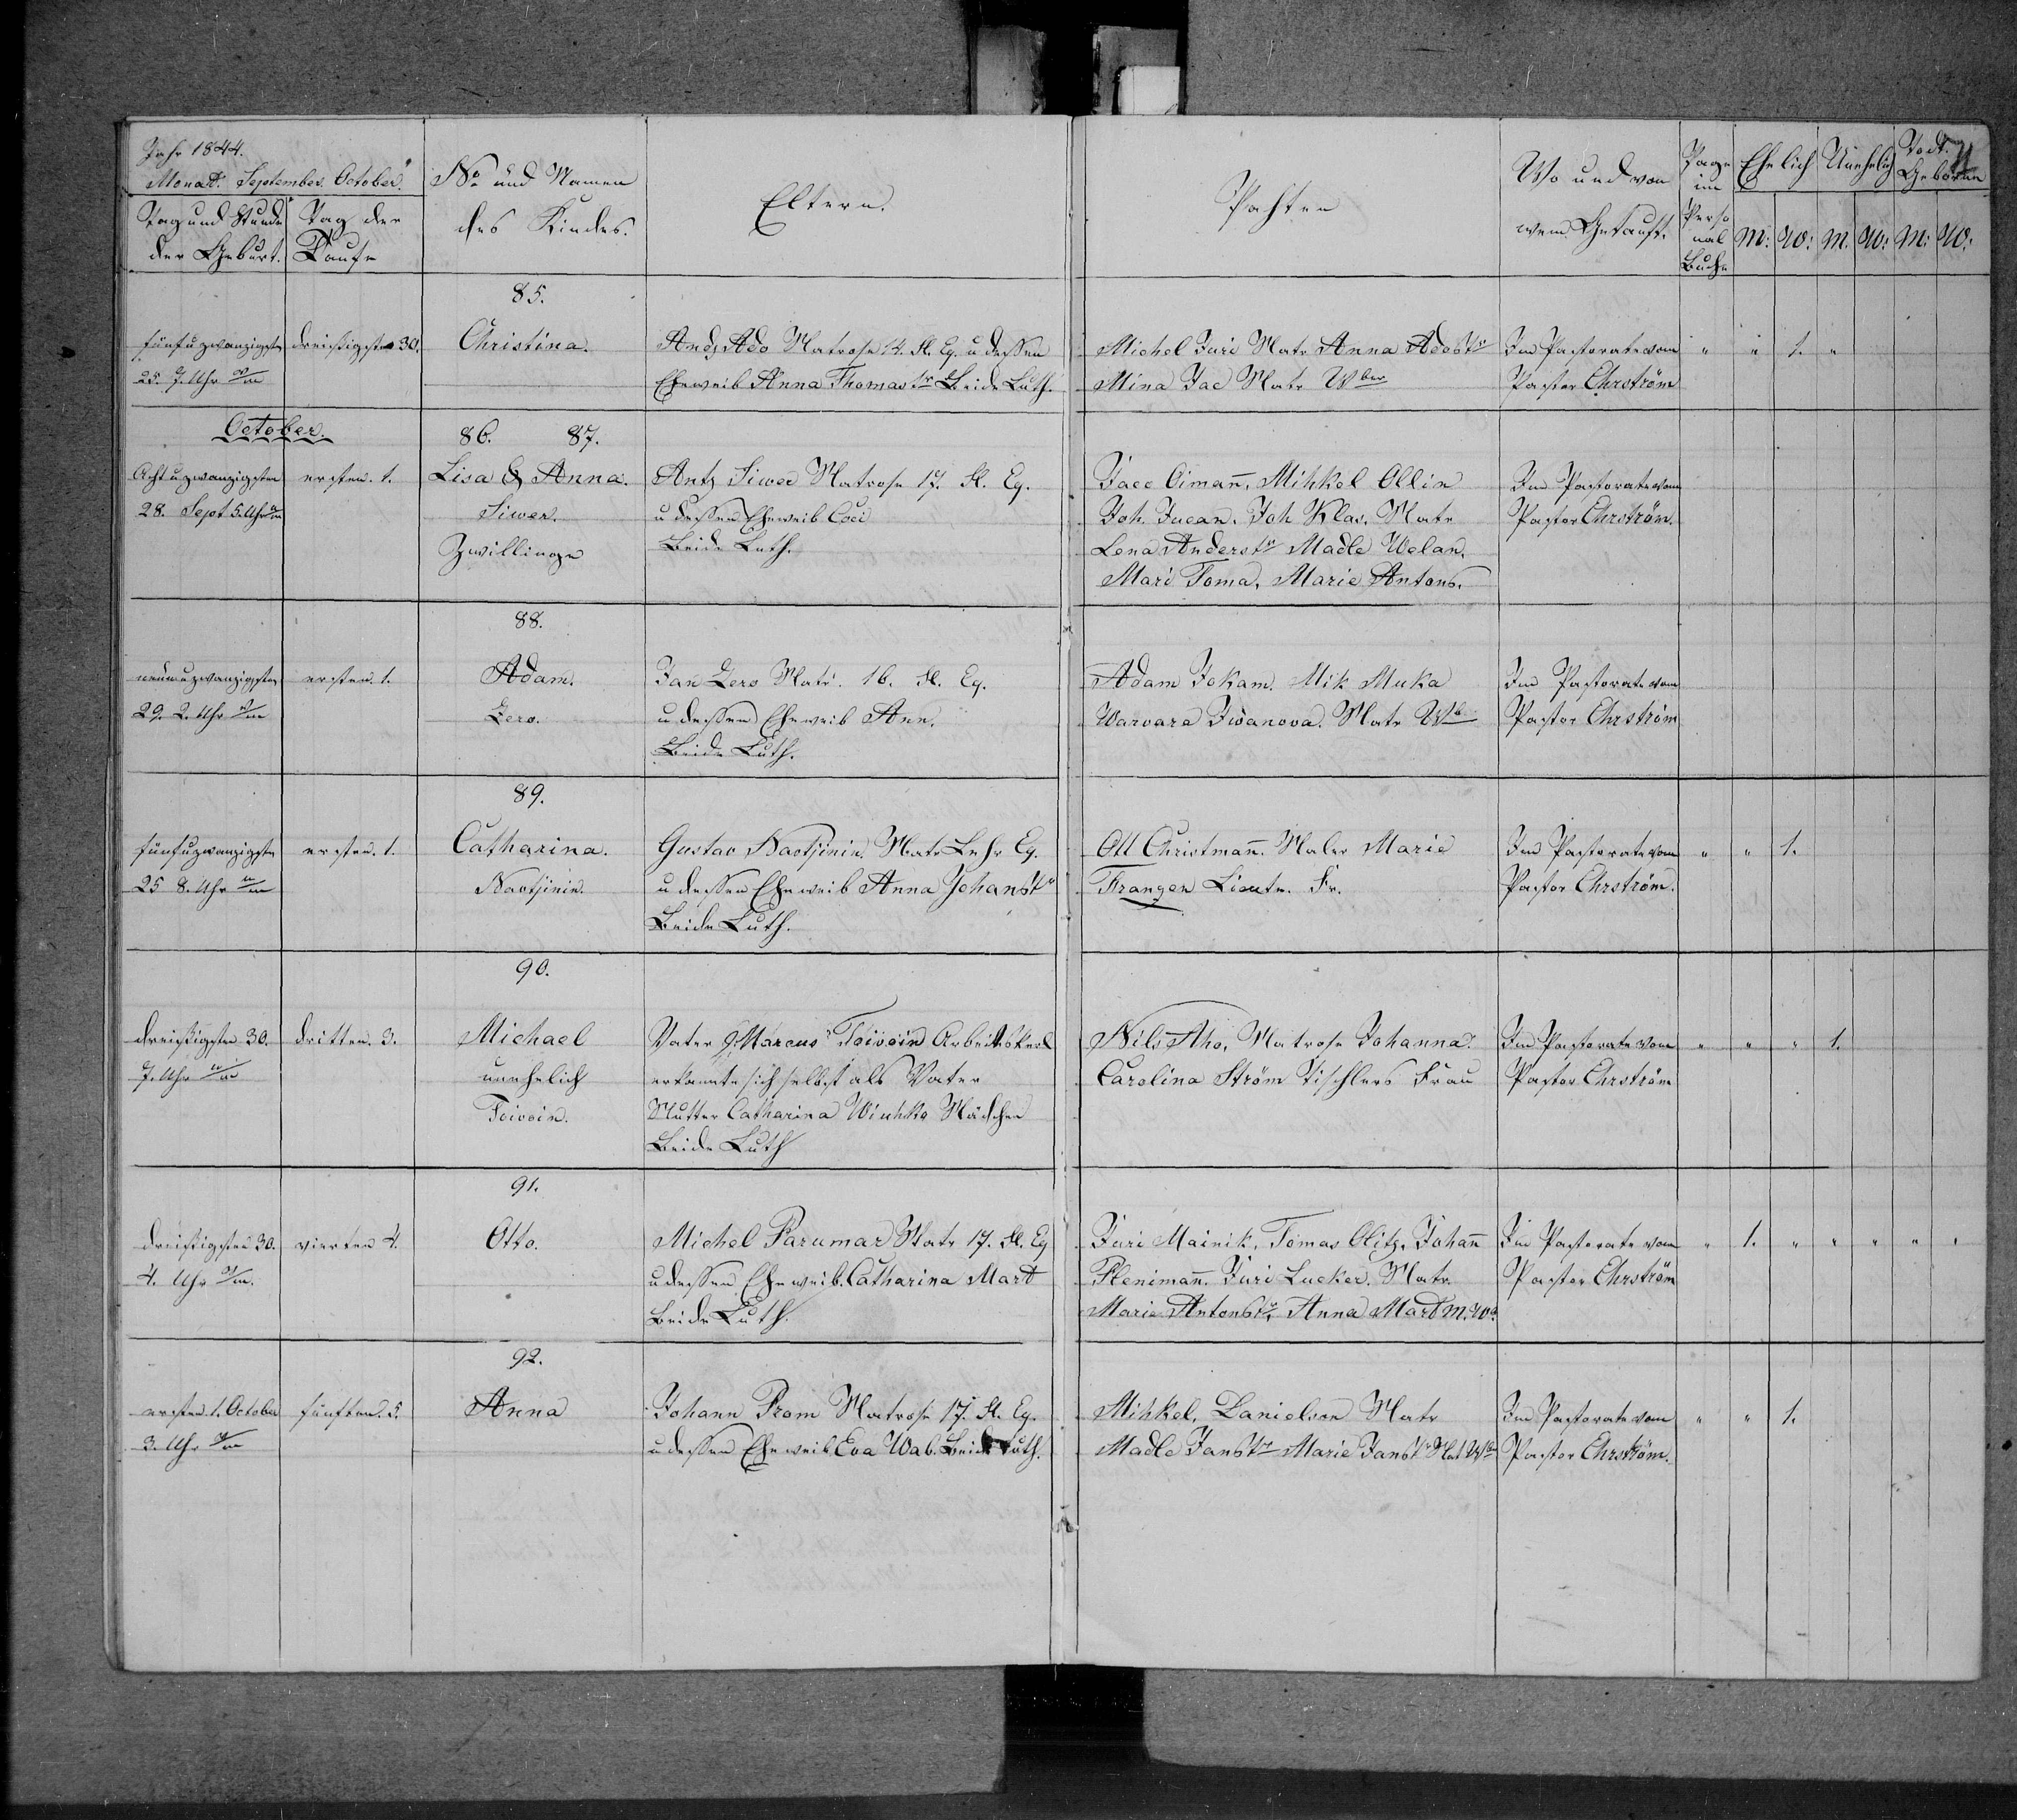 Jahr 1844.
Monat. September. October.
Tag und Stunde der Geburt.
Tag der Taufe
No und Namen des Kindes.
Eltern.
Pathen
Wo und von wem Getauft.
Page im Personal Buche
Ehelich
Unehelich
Todt Geboren
M: W: M. W: M: W:
85.
fünfuzwanzigsten dreißigsten 30. Christina. And. Ado Matrose 14. Fl. Eq. u dessen Michel Juri Matr Anna Adostr Im Pastorate vom " " 1. "
25. 7. Uhr Eheweib Anna Thomastr Beide Luth. Mina Jac Matr Wber Pastor Ehrström
October.
86. 87.
Achtuzwanzigsten ersten. 1. Lisa & Anna. Antz Siwer Matrose 17. Fl. Eq. Jacc Oiman̄, Mihkel Ollin Im Pastorate vom
28. Sept 5. Uhr Siwer. u dessen Eheweib Coci Joh. Jucan. Joh Klas. Matr Pastor Ehrström.
Zwillinge Beide Luth. Lena Anderstr Madle Welan.
Mari Toma, Marie Antons.
88.
neunuzwanzigsten ersten. 1. Adam. Jan Zero Matr. 16. Fl. Eq. Adam Jokam. Mik Muka Im Pastorate vom
29. 2. Uhr Zero. u dessen Eheweib Ann. Warvara Iwanova. Matr Wb Pastor Ehrström
Beide Luth.
89.
fünfuzwanzigsten ersten. 1. Catharina. Gustav Naotjinin. Matr Lehr Eq. Ott Christman̄. Maler Marie Im Pastorate vom " " 1.
25 8. Uhr Naotjinin. u dessen Eheweib Anna Johanstr Franzen Lieutn. Fr. Pastor Ehrström.
Beide Luth.
90.
dreißigsten 30. dritten. 3. Michael Vater Marcus Toivoin Arbeitskerl Nils Aho, Matrose Johanna. Im Pastorate vom " " " 1.
7. Uhr unehelich erkannte sich selbst als Vater Carolina Ström Tischlers Frau Pastor Ehrström
Toivoin. Mutter Catharina Wiuhko Mädchen
Beide Luth
91.
dreißigsten 30. vierten 4. Otto. Michel Parumar Matr 17. Fl. Eq Juri Mainik, Tomas Olitz, Johan̄ Im Pastorate vom " 1. " " " " "
4. Uhr u dessen Eheweib. Catharina Mart Plenimān. Juri Lucker. Matr. Pastor Ehrström
Beide Luth. Marie Antonstr, Anna Mart M. Wb.
92.
ersten 1. October fünften. 5. Anna Johann Prom Matrose 17. Fl. Eq. Mihkel. Danielson Matr Im Pastorate vom " " 1.
3. Uhr u dessen Eheweib Eva Wab. Beide Luth. Madle Janstr Marie Janstr Mat Wbr Pastor Ehrström.